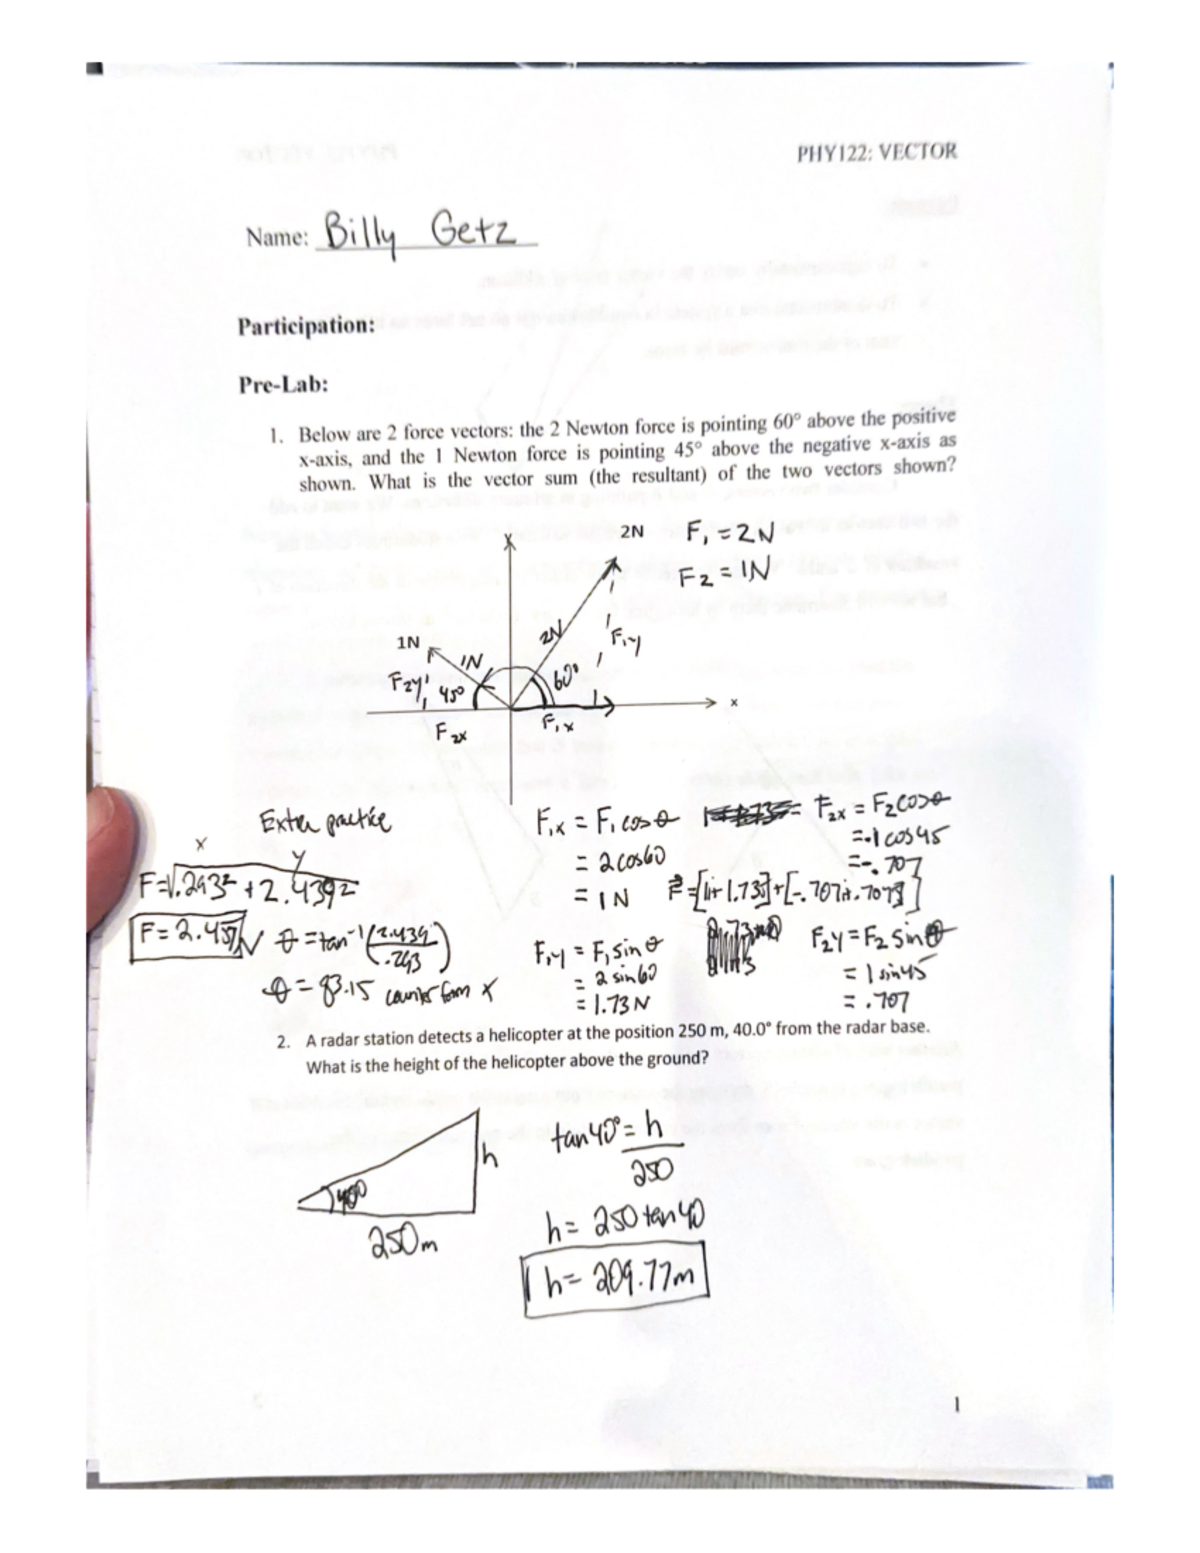 PHY122: VECTOR
Name: Billy Getz
Participation:
Pre-Lab:
1. Below are 2 force vectors: the 2 Newton force is pointing 60° above the positive
x-axis, and the 1 Newton force is pointing 45° above the negative x-axis as
shown. What is the vector sum (the resultant) of the two vectors shown?
y
2N
F₁ = 2N
F2 = 1N
1N
1N
2N
F1y
F2y
45°
60°
x
F2x
F1x
Extra practice
x
y
F=√.293² + 2.439²
F = 2.457N
θ = tan⁻¹(2.439/.293)
θ = 83.15 counter from x
F1x = F1 cosθ
= 2cos60
= 1N
F1y = F1 sinθ
= 2 sin60
= 1.73N
F2x = F2cosθ
=-1cos45
=-.707
F=[1i+1.73j]+[-.707i+.707j]
F2y = F2 sinθ
= 1 sin45
= .707
2. A radar station detects a helicopter at the position 250 m, 40.0° from the radar base.
What is the height of the helicopter above the ground?
40°
h
250m
tan40° = h/250
h = 250tan40
h = 209.77m
1